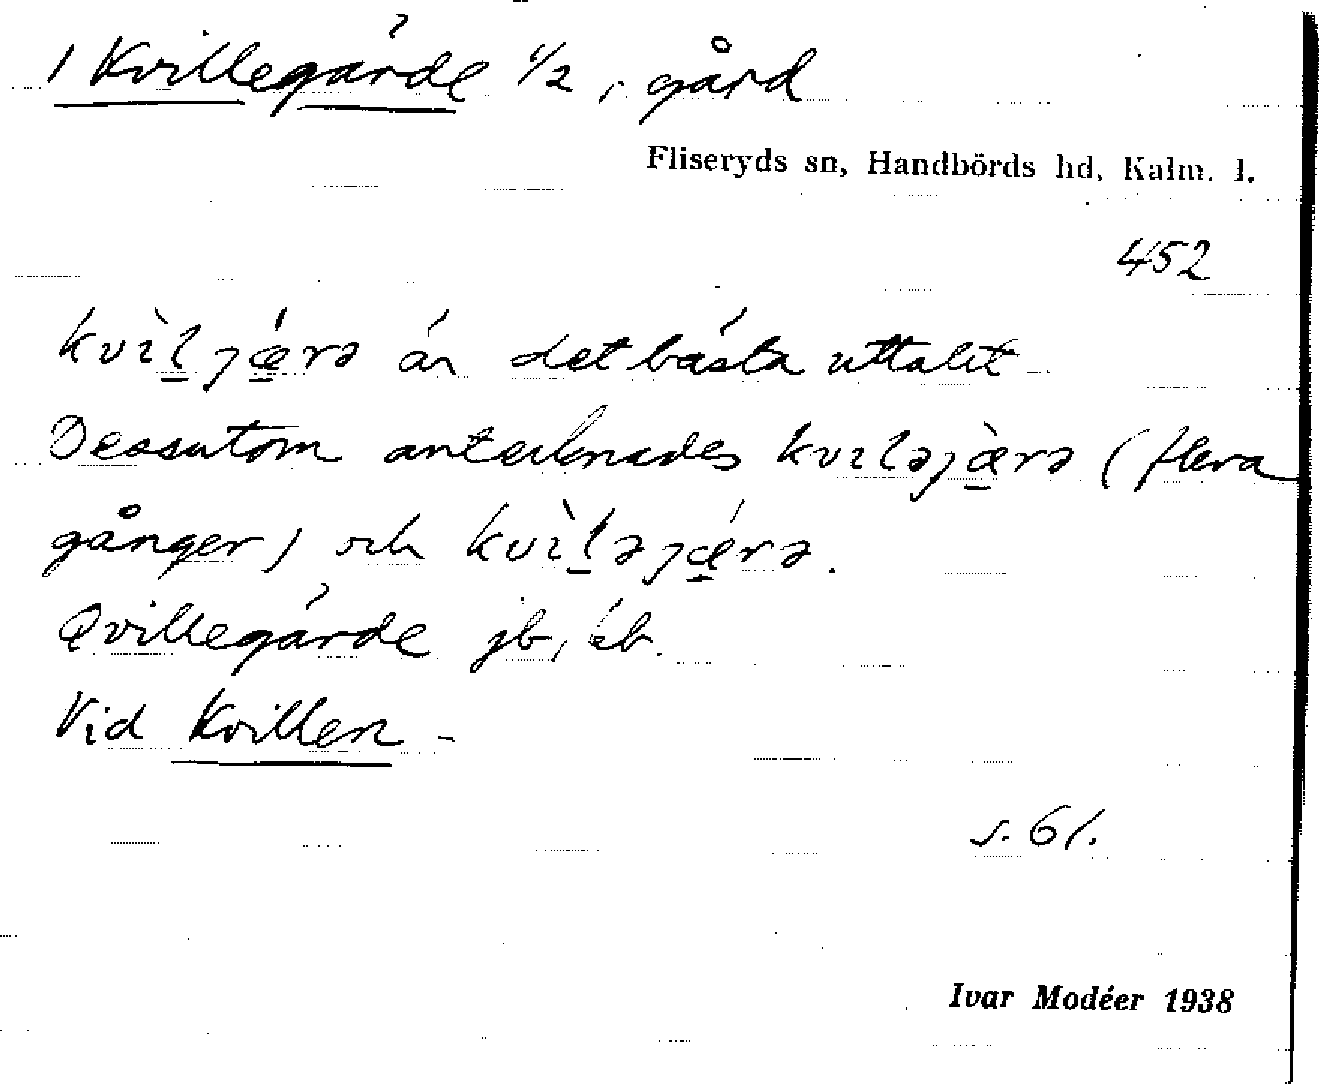 1 Kvillegärde 1/2, gård
Fliseryds sn, Handbörds hd, Kalm. l.
452
kvìl̠ȷǽ̠rə är det bästa uttalet
Dessutom antecknades kvıləȷæ̠̀rə (flera
gånger) och kvìl̠əȷǽ̠rə.
Qvillegärde jb, äb.
Vid Kvillen -
s. 61.
Ivar Modéer 1938